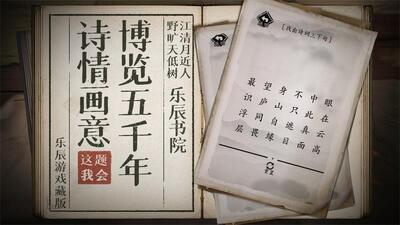 江清月近人
野旷天低树
乐辰书院
博览五千年
诗情画意
这题
我会
乐辰游戏藏版
[找出诗词上下句]
最望身不中眼
识庐山只此在
浮同自迷真云
层畏缘目面高